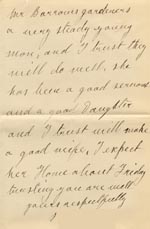 Mr Barrows gardeners
a very steady young
man, and I trust they
will do well, she
has been a good servant
and a good Daughter
and I trust will make
a good wife, I expect
her Home about Friday
trusting you are well
yours respectfully